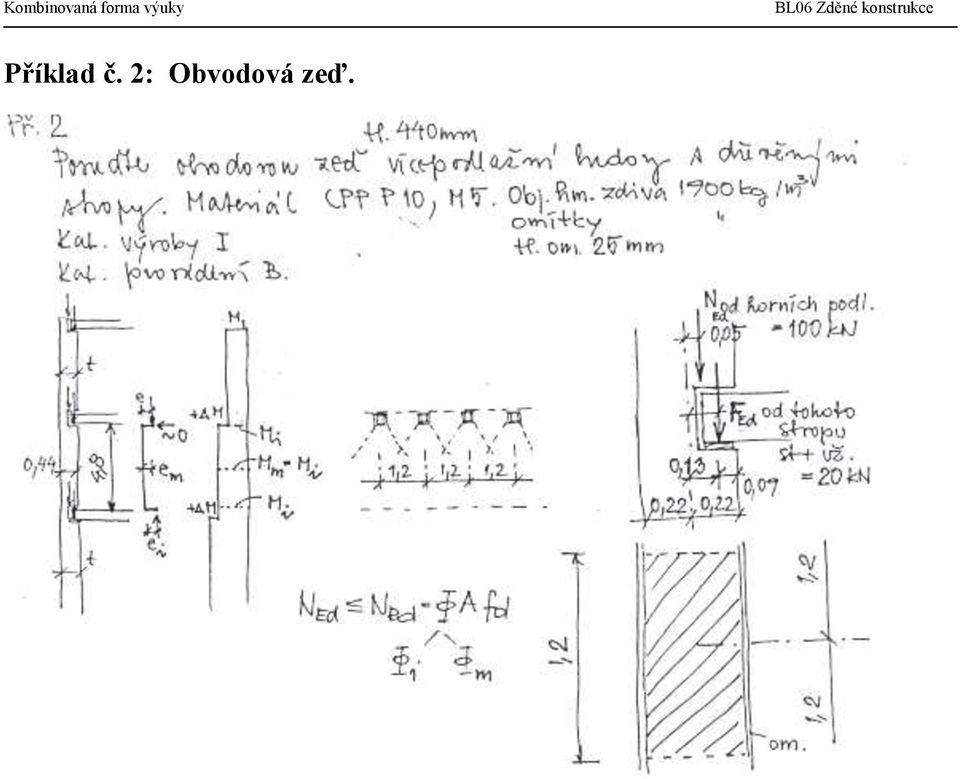 Kombinovaná forma výuky BL06 Zděné konstrukce
Příklad č. 2: Obvodová zeď.
Př. 2
tl. 440mm
Posuďte obvodovou zeď vícepodlažní budovy s dřevěnými
stropy. Materiál CPP P10, M5. Obj. hm. zdiva 1900kg/m³
omítky "
Kat. výroby I tl. om. 25 mm
Kat. provádění B.
N Ed od horních podl.
= 100 kN
0,05
M1
t
e1
≈0
+ΔM
Mi
0,44
4,8
em
Mm=Mi
+ΔM
Mi
ei
t
1,2 1,2 1,2
FEd od tohoto
stropu
st + už.
= 20 kN
0,13
0,09
0,22 0,22
NEd ≤ NRd = ΦA fd
Φi Φm
1,2
1,2
1,2
om.